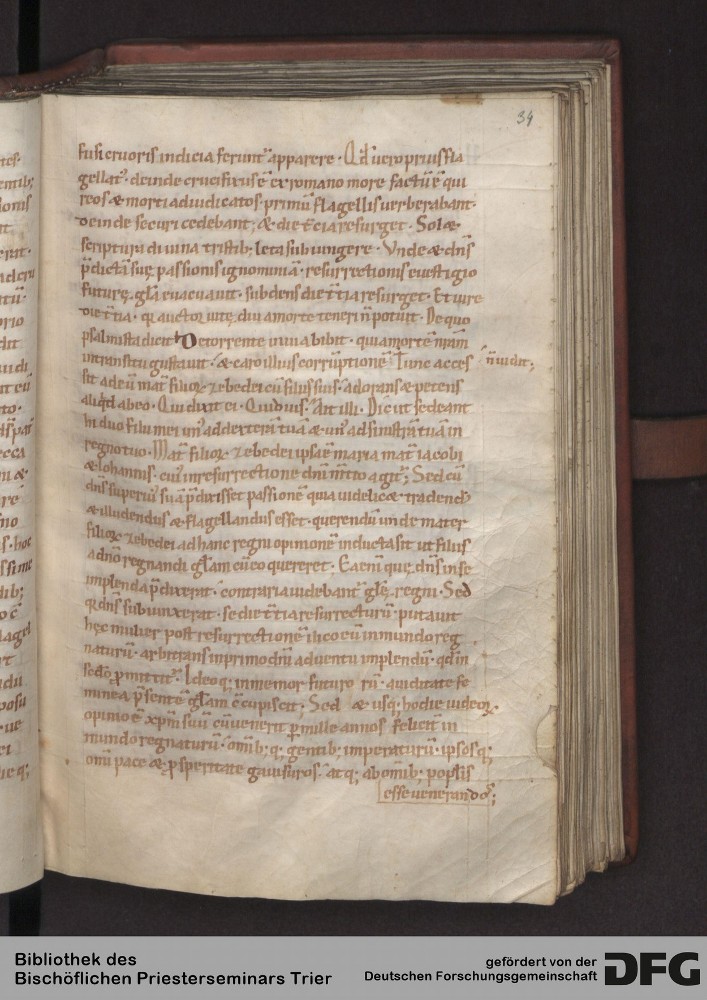 34
fusi cruoris indicia ferunt᷑ apparere · Qd̄ uero prius fla
gellat᷑ · deinde crucifixus ē ex romano more factū ē qui
reos & morti adiudicatos · primū flagellis uerberabant ·
deinde securi cedebant; & die t̄cia resurget · Sol&
scriptura diuina tristib; leta subiungere · Vnde & dn̄s
p̄dictā suę passionis ignominiā · resurrectionis euestigio
futurę · gl̄a euacuauit · subdens die t̄tia resurget · Et iure
die t̄tia · qꝛ auctor uitę diu a morte teneri n̄ potuit · De quo
psalmista dicit De torrente in uia bibit · quia mortē n̄r̄am
in transitu gustauit · & caro illius corruptionē Tunc acces
n̄ uidit;
sit ad eū mat᷑ filioꝝ zebedei cū filiis suis · adorans & petens
aliqd ab eo · Qui dixit ei · Quid uis · Ait illi · Dic ut sedeant
hi duo filii mei un᷒ ad dexterā tuā & un᷒ ad sinistrā tuā in
regno tuo · Mat᷑ filioꝝ zebedei ipsa ē maria mat᷑ iacobi
& Iohannis · cui᷒ in resurrectione dn̄i m̄tio agit᷑; Sed cū
dn̄s superi᷒ suā p̄dixisset passionē quia uidelic& tradend᷒
& illudendus & flagellandus esset · querendū unde mater
filioꝝ zebedei ad hanc regni opinionē inducta sit ut filiis
a dn̄o regnandi gl̄am cū eo quereret · Ea eni quę dn̄s in se
implenda p̄dixerat · contraria uidebant᷑ glę · regni · Sed
qꝛ dn̄s subiunxerat · se die t̄tia resurrecturū putauit
hęc mulier post resurrectionē ilico eū in mundo reg
naturū · arbitrans in primo dn̄i aduentu implendū · qd̄ in
sedo p̄mittit᷑ · Ideoq; inmemor futuro rū · auiditate fe
minea p̄sentē gl̄am c̄cupiscit; Sed & usq; hodie iudeoꝝ
opinio ē xp̄m suū cū uenerit p̄ mille annos felicit᷑ in
mundo regnaturū · omīb; q; gentib; imperaturū · ipsosq;
om̄i pace & p̄speritate gauisuros · atq; ab omīb; populis
esse uenerandos;
Bibliothek des
Bischöflichen Priesterseminars Trier
gefördert von der
Deutschen Forschungsgemeinschaft
DFG